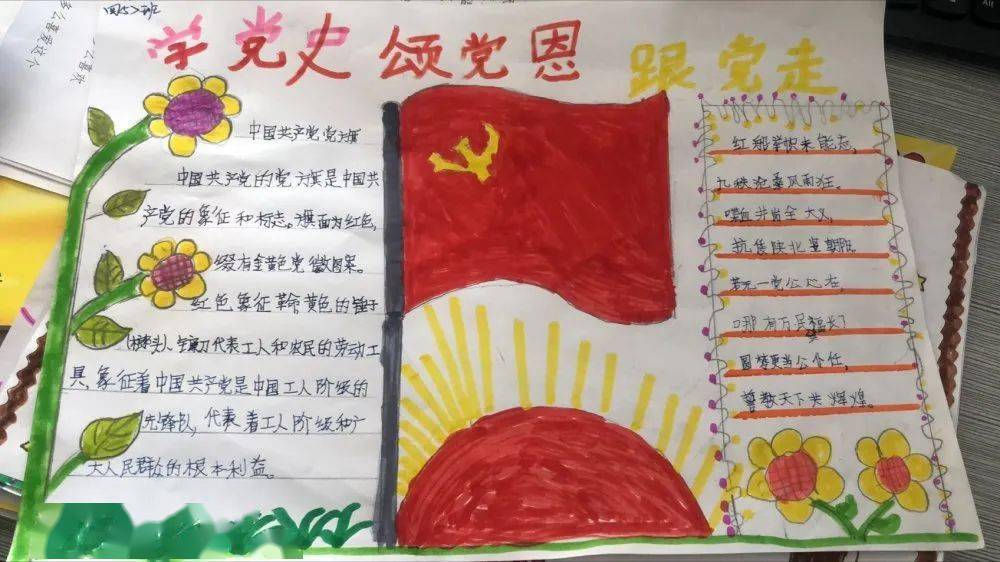 四(5)班
学党史 颂党恩 跟党走
中国共产党党旗
中国共产党的党旗是中国共
产党的象征和标志。旗面为红色,
缀有金黄色党徽图案。
红色象征革命黄色的锤子
镰刀代表工人和农民的劳动工
具,象征着中国共产党是中国工人阶级的
先锋队,代表着工人阶级和广
大人民群众的根本利益。
红船学识未能忘,
九秩沧桑风雨狂。
喋血井岗全大义,
抗焦陕北望朝阳
若无一党公心在,
哪有万民福长
圆梦更当公个任,
誓教天下共辉煌。